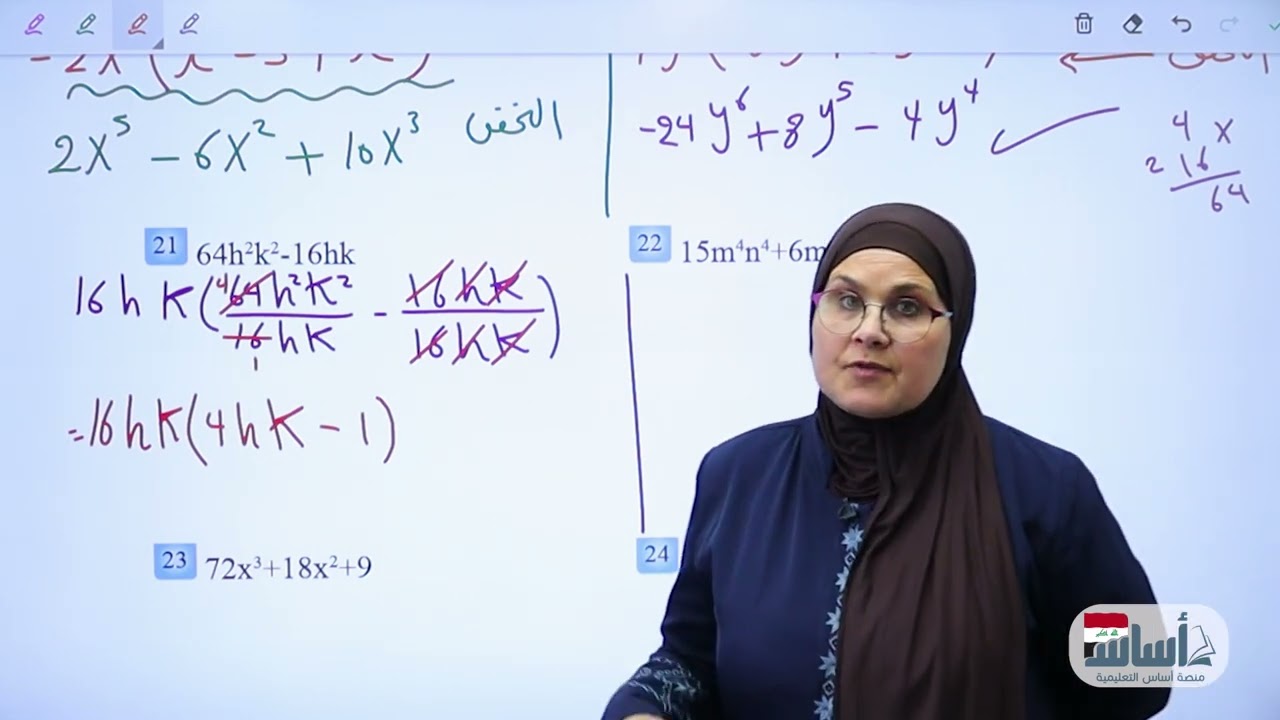 2x⁵ - 6x² + 10x³ التحقق
-24y⁶ + 8y⁵ - 4y⁴
4 x
2 16
64
21 64h²k²-16hk
16hk(64h²k²/16hk - 16hk/16hk)
4
1
=16hk(4hk - 1)
22 15m⁴n⁴+6m
23 72x³+18x²+9
24
أساس
منصة أساس التعليمية